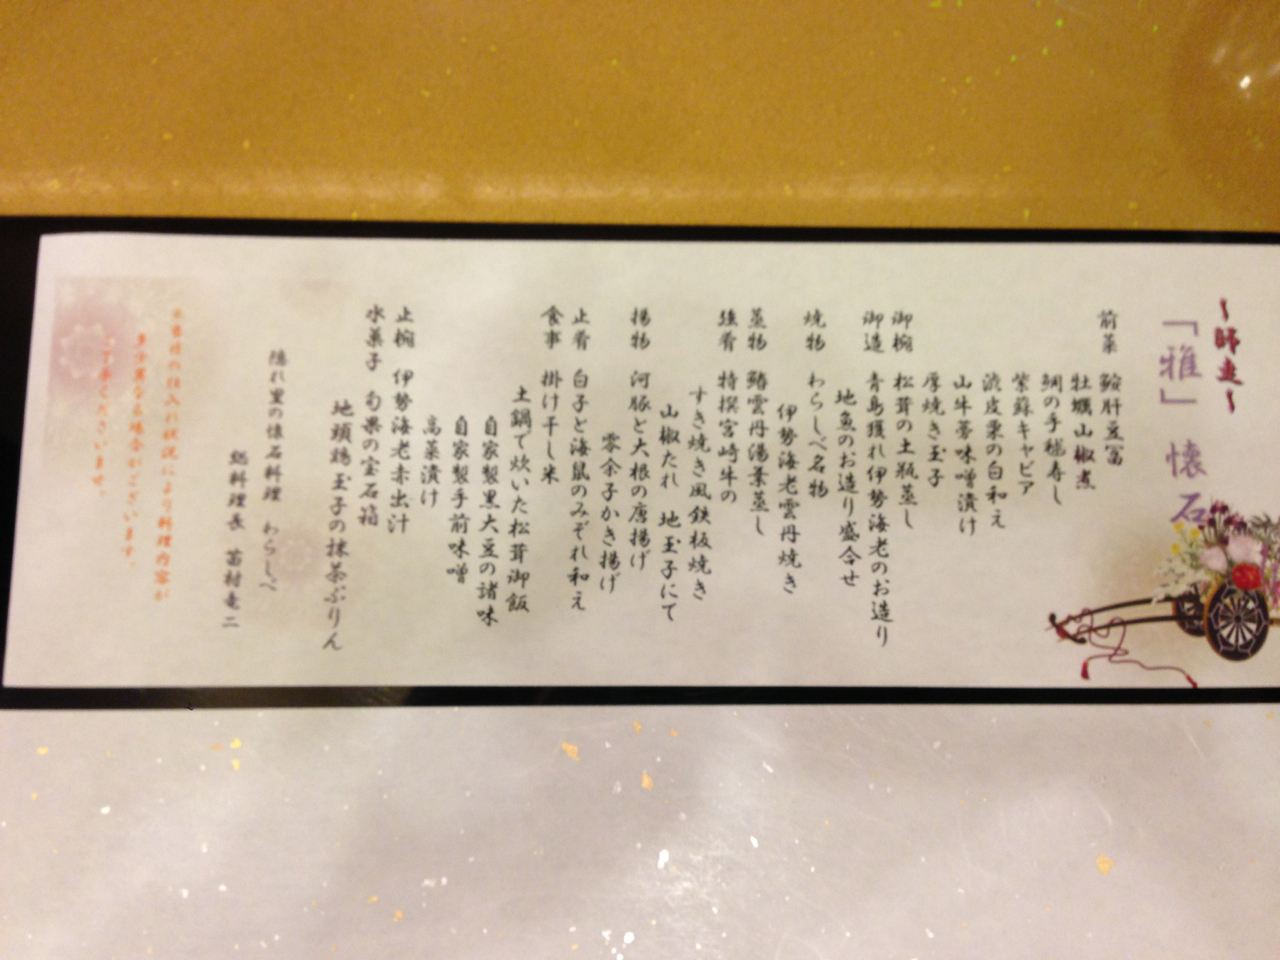 ～師走～
「雅」懐石
前菜 鮟肝豆冨
牡蠣山椒煮
鯛の手毬寿し
紫蘇キャビア
渋皮栗の白和え
山牛蒡味噌漬け
厚焼き玉子
御椀 松茸の土瓶蒸し
御造 青島獲れ伊勢海老のお造り
地魚のお造り盛合せ
焼物 わらしべ名物
伊勢海老雲丹焼き
蒸物 鰆雲丹湯葉蒸し
強肴 特撰宮崎牛の
すき焼き風鉄板焼き
山椒たれ 地玉子にて
揚物 河豚と大根の唐揚げ
零余子かき揚げ
止肴 白子と海鼠のみぞれ和え
食事 掛け干し米
土鍋で炊いた松茸御飯
自家製黒大豆の諸味
自家製手前味噌
高菜漬け
止椀 伊勢海老赤出汁
水菓子 旬果の宝石箱
地頭鶏玉子の抹茶ぷりん
隠れ里の懐石料理 わらしべ
総料理長 苗村竜二
※食材の仕入れ状況により料理内容が
多少異なる場合がございます。
ご了承くださいませ。